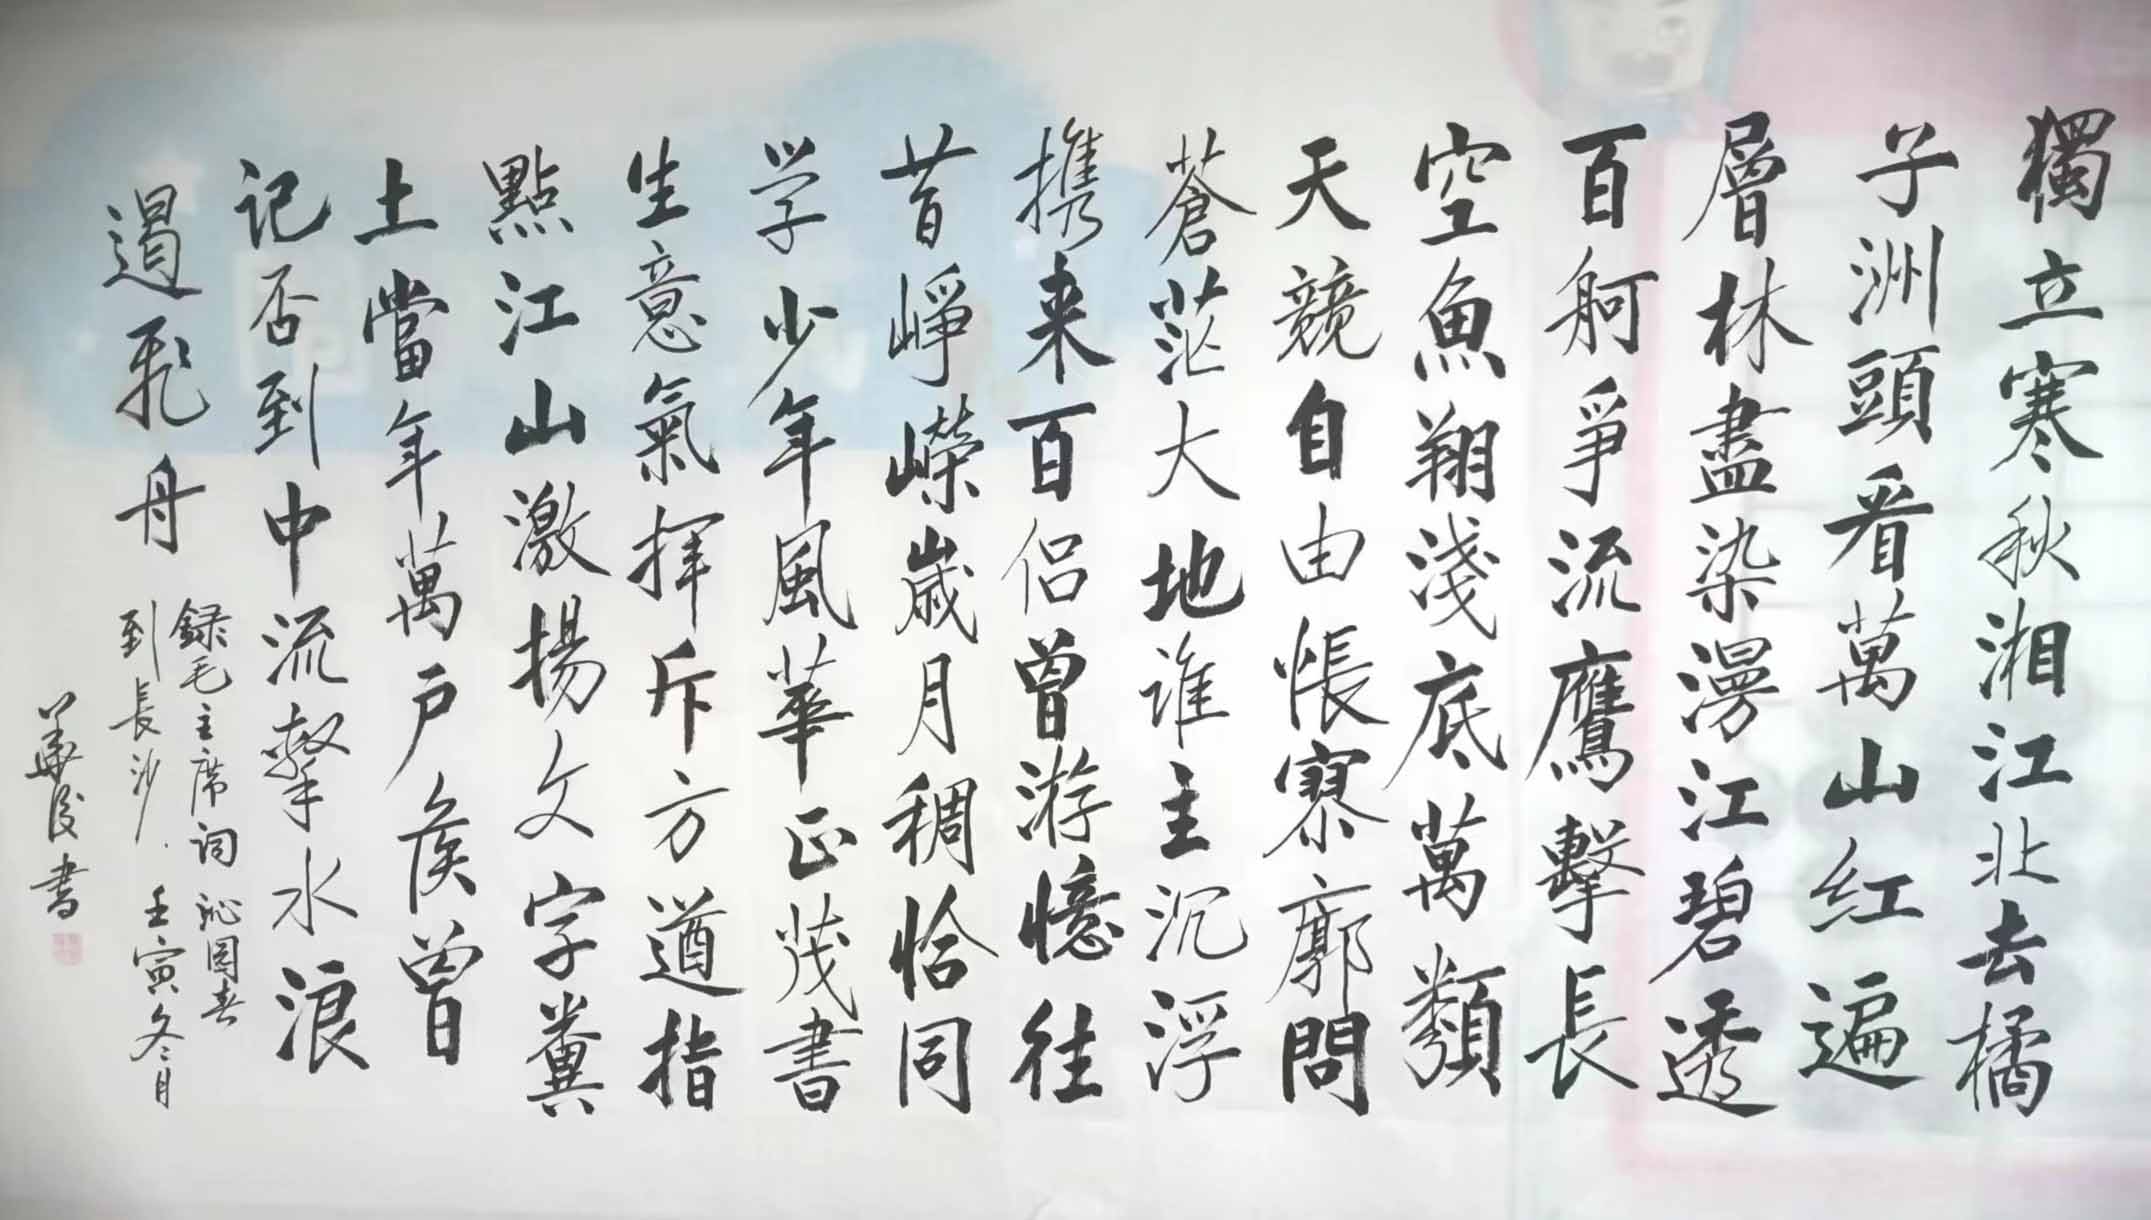 獨立寒秋湘江北去橘
子洲頭看萬山红遍
層林盡染漫江碧透
百舸爭流鷹擊長
空魚翔淺底萬類
天競自由悵寥廓問
蒼茫大地谁主沉浮
携来百侣曾游憶往
昔崢嶸歲月稠恰同
学少年風華正茂書
生意氣挥斥方遒指
點江山激揚文字糞
土當年萬户矦曾
记否到中流擊水浪
遏飛舟
録毛主席词沁园春
到長沙.壬寅冬月
書